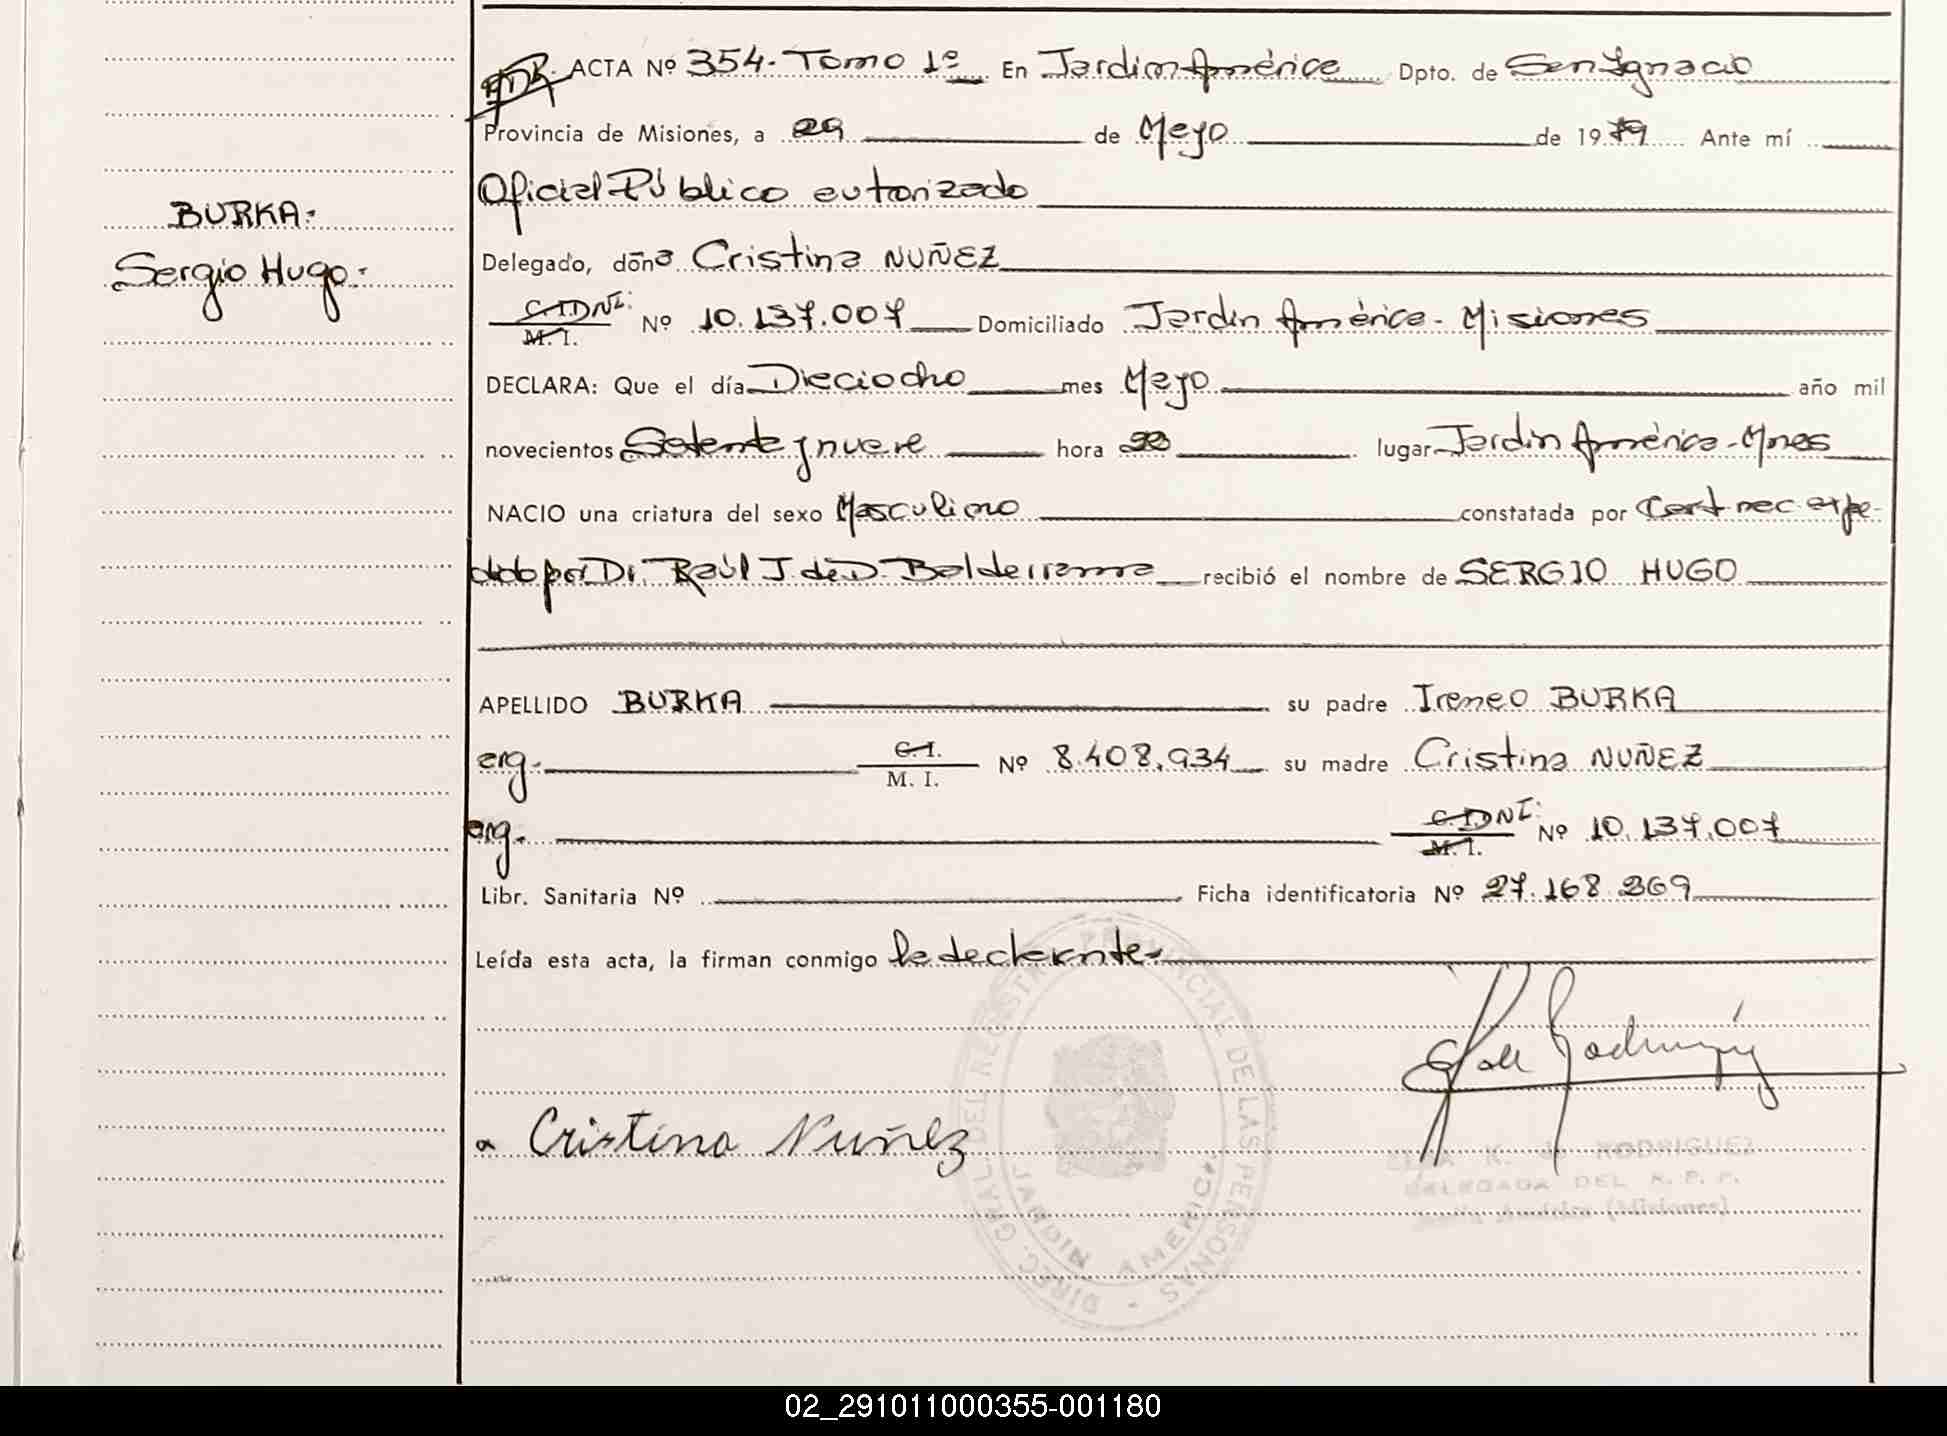 BURKA:
Sergio Hugo:
ACTA Nº 354. Tomo 1º En Jardin América Dpto. de San Ignacio
Provincia de Misiones, a 29 de Mayo de 1979 Ante mí
Oficial Público autorizado
Delegado, doña Cristina NUÑEZ
C.I. DNI: M. I. Nº 10.137.007 Domiciliado Jardin América - Misiones
DECLARA: Que el día Dieciocho mes Mayo año mil
novecientos Setenta y nueve hora lugar Jardin América - Mnes
NACIO una criatura del sexo Masculino constatada por Cert nec expe-
dido por Dr. Raúl J. de D. Balderrama recibió el nombre de SERGIO HUGO
APELLIDO BURKA su padre Ireneo BURKA
arg. C.I. M. I. Nº 8.408.934 su madre Cristina NUÑEZ
arg. C.I. DNI: M. I. Nº 10.137.007
Libr. Sanitaria Nº Ficha identificatoria Nº 27.168.269
Leída esta acta, la firman conmigo la declarante
Cristina Nuñez
K. de RODRIGUEZ
DELEGADA DEL R. P. P.
Jardín América (Misiones)
DIREC. GRAL. DEL REGISTRO PROVINCIAL DE LAS PERSONAS -
JARDIN AMERICA
02_291011000355-001180